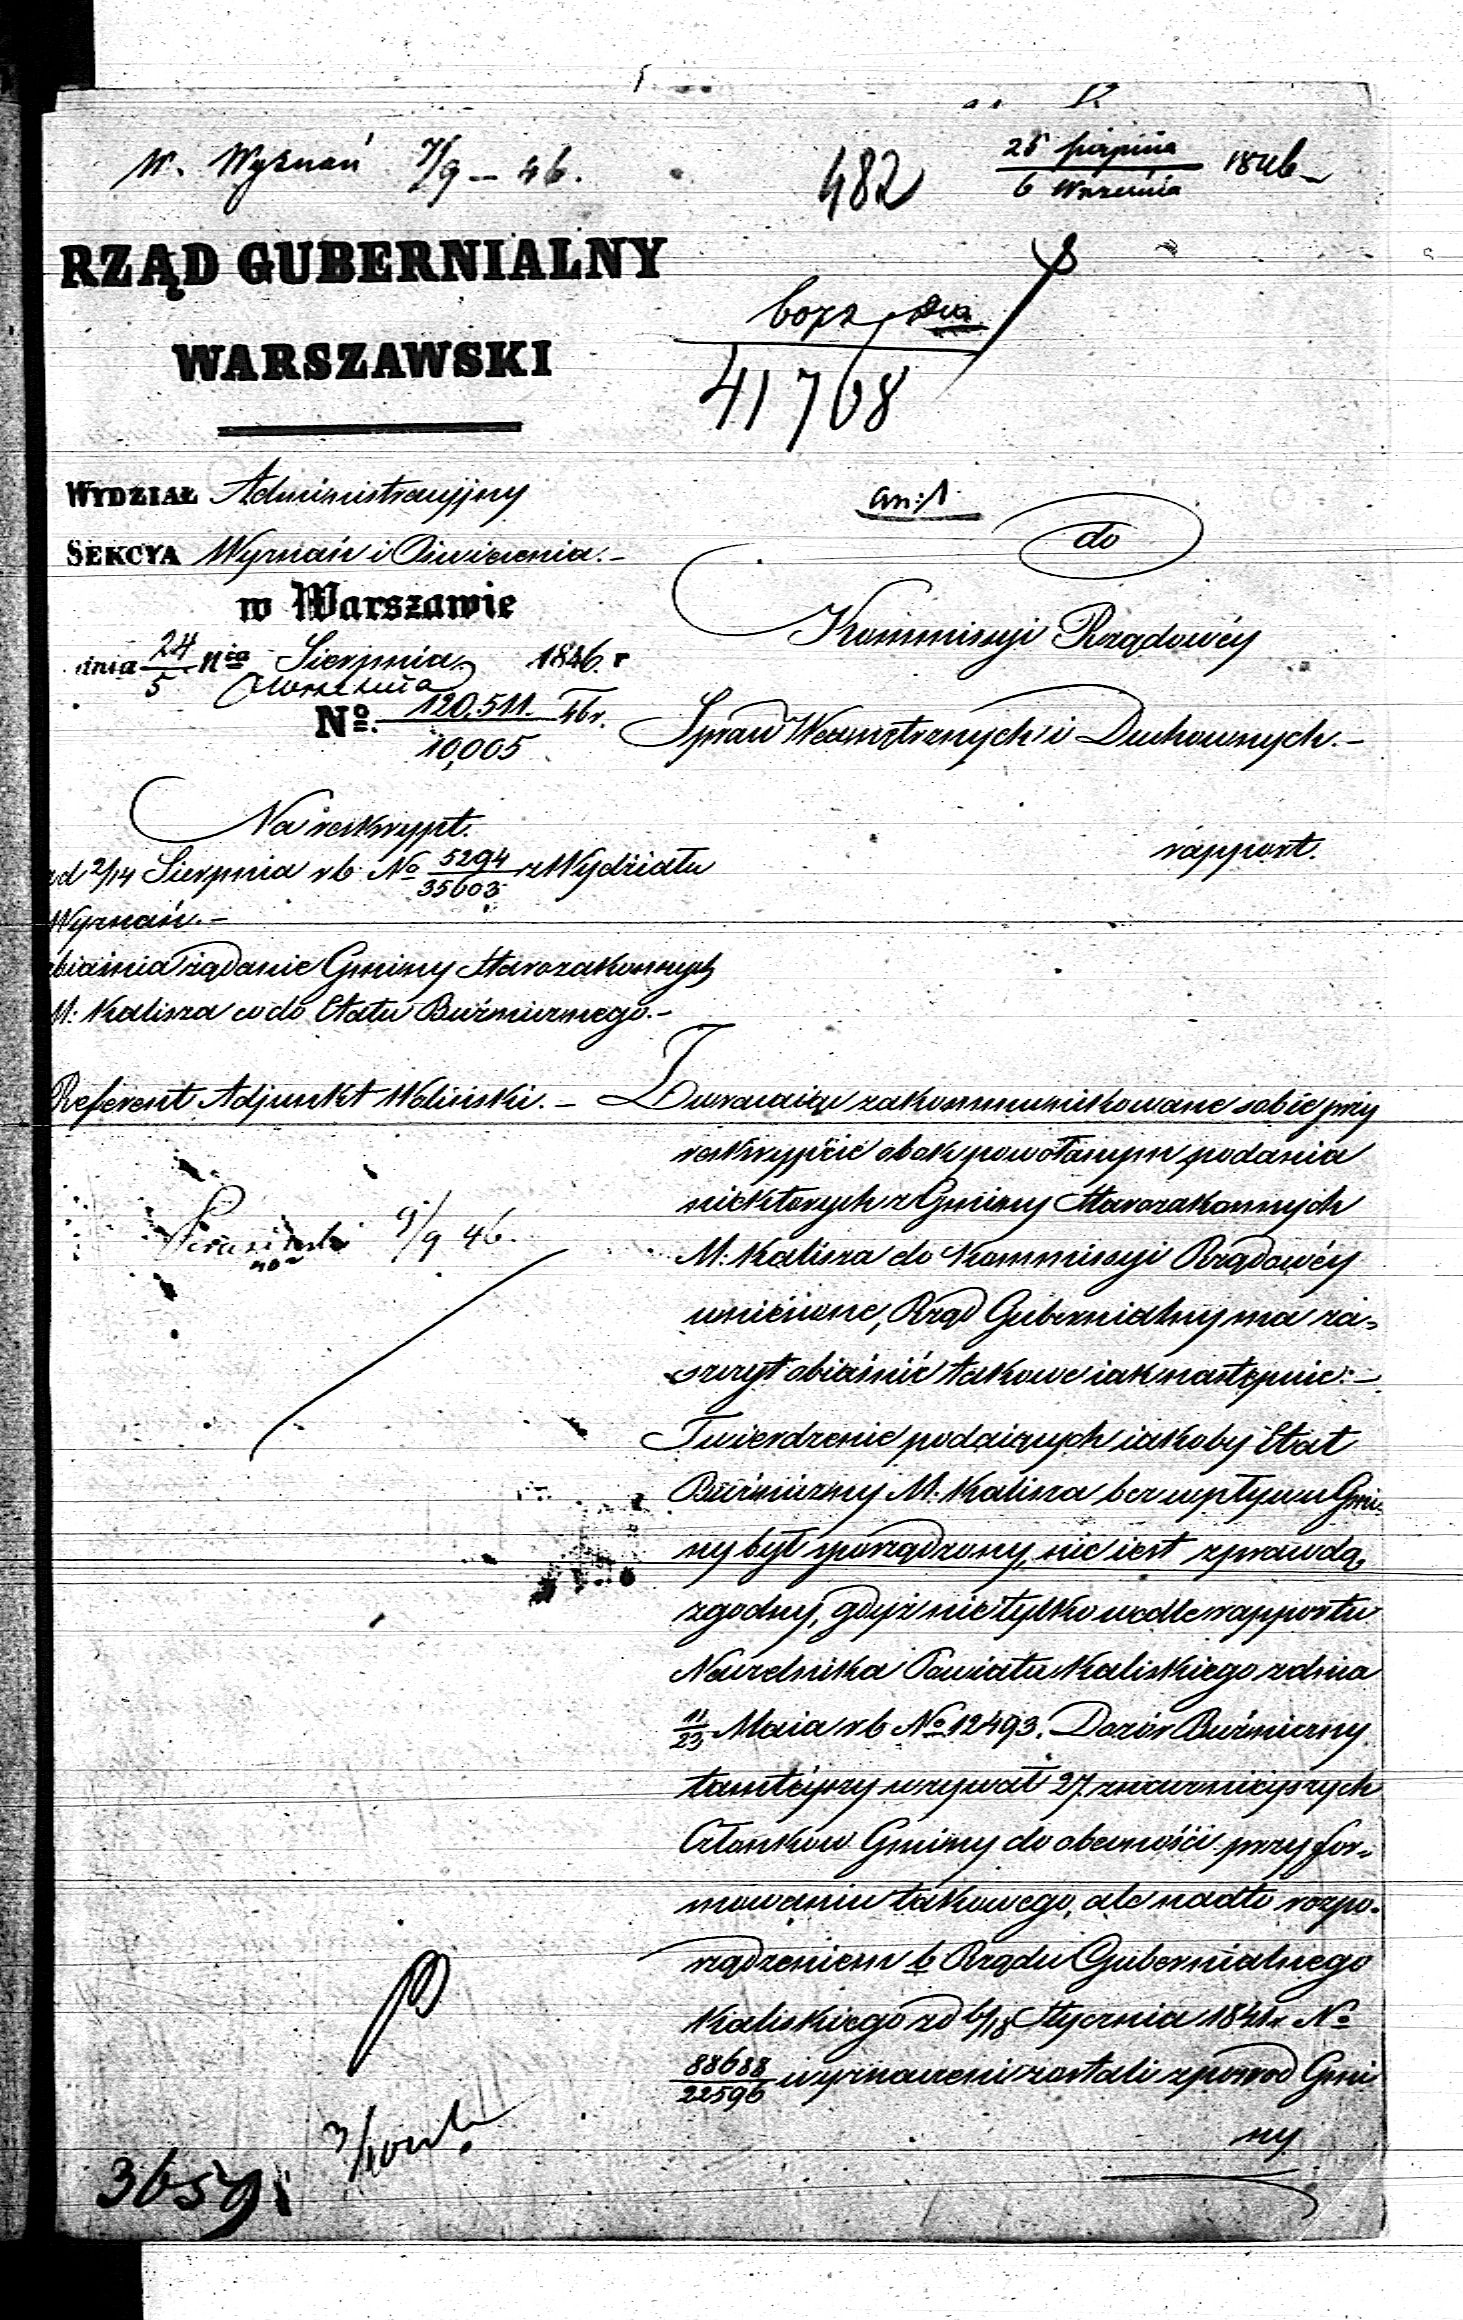 W. Wyznań 7/9 – 46.
482
25 sierpnia
6 Września
1846
RZĄD GUBERNIALNY
WARSZAWSKI
41768
WYDZIAŁ Administracyjny
SEKCYA Wyznań i Oświecenia.–
w Warszawie
dnia 24/5 nia Sierpnia/Września 1846. r
No. 120,511./10,005 46 r.
an: 1
do
Kommissyi Rządowéy
Spraw Wewnętrznych i Duchownych.–
rapport.
Na reskrypt.
od 2/14 Sierpnia rb No 5294/35603 z Wydziału
Wyznań.–
obiaśnia żądanie Gminy Starozakonnych
M: Kalisza co do Etatu Bóźnicznego.–
Referent Adjunkt Woliński.–
5/9 46.
Zwracaiąc zakommunikowane sobie przy
reskrypcie obok powołanym podania
niektórych z Gminy Starozakonnych
M: Kalisza do Kommissyi Rządowéy
wniesione, Rząd Gubernialny ma za-
szczyt obiaśnić takowe iak następuie:–
Twierdzenie podaiących iakoby Etat
Bóźniczny M: Kalisza bez wpływu Gmi-
ny był sporządzony, nie iest z prawdą
zgodny, gdyż nie tylko wedle rapportu
Naczelnika Powiatu Kaliskiego z dnia
11/23 Maia rb No 12493. Dozór Bóźniczny
tamtéyszy wzywał 27 znacznieyszych
Członków Gminy do obecności przy for-
mowaniu takowego, ale nadto rozpo-
rządzeniem b Rządu Gubernialnego
Kaliskiego zd 6/18 Stycznia 1841 r No
88688/22596 wyznaczeni zostali z pośrod Gmi
ny
3659